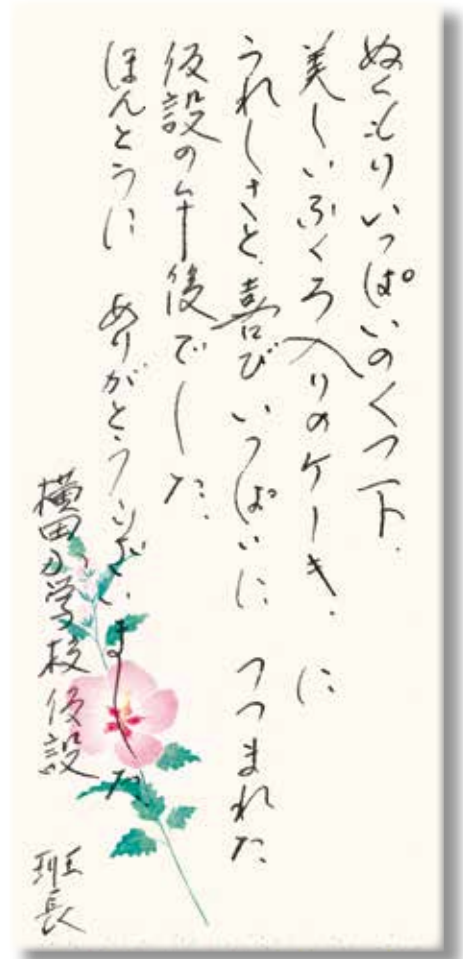 ぬくもりいっぱいのくつ下、
美しいふくろ入りのケーキ、に
うれしさと喜びいっぱいに つつまれた
仮設の午後でした。
ほんとうに ありがとうございました。
横田小学校仮設 班長